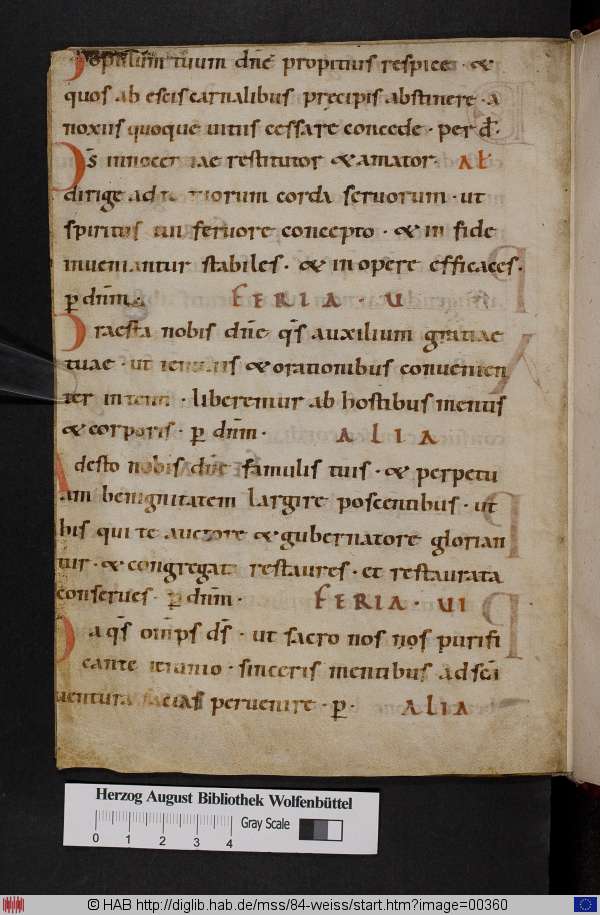 Populum tuum dñe propitius respice · &
quos ab escis carnalibus precipis abstinere · a
noxiis quoque uitiis cessare concede · per d̄·
Ds̄ innocentiae restitutor & amator · AŁ
dirige ad te tuorum corda seruorum · ut
spiritus tui feruore concepto · & in fide
inueniantur stabiles · & in opere efficaces ·
p̄ dñm · FERIA · U
Praesta nobis dñe qs̄ auxilium gratiae
tuae · ut ieiuniis & orationibus conuenien
ter intenti · liberemur ab hostibus mentis
& corporis · p̄ dñm · ALIA
Adesto nobis dñe famulis tuis · & perpetu
am benignitatem largire poscentibus · ut
his qui te auctore & gubernatore glorian
tur · & congregata restaures · et restaurata
conserues · p̄ dñm · FERIA · UI
Da qs̄ omp̄s ds̄ · ut sacro nos nos purifi
cante ieiunio · sinceris mentibus ad sc̄a
uentura facias peruenire · p̄ · ALIA
Herzog August Bibliothek Wolfenbüttel
Gray Scale
0 1 2 3 4
© HAB http://diglib.hab.de/mss/84-weiss/start.htm?image=00360